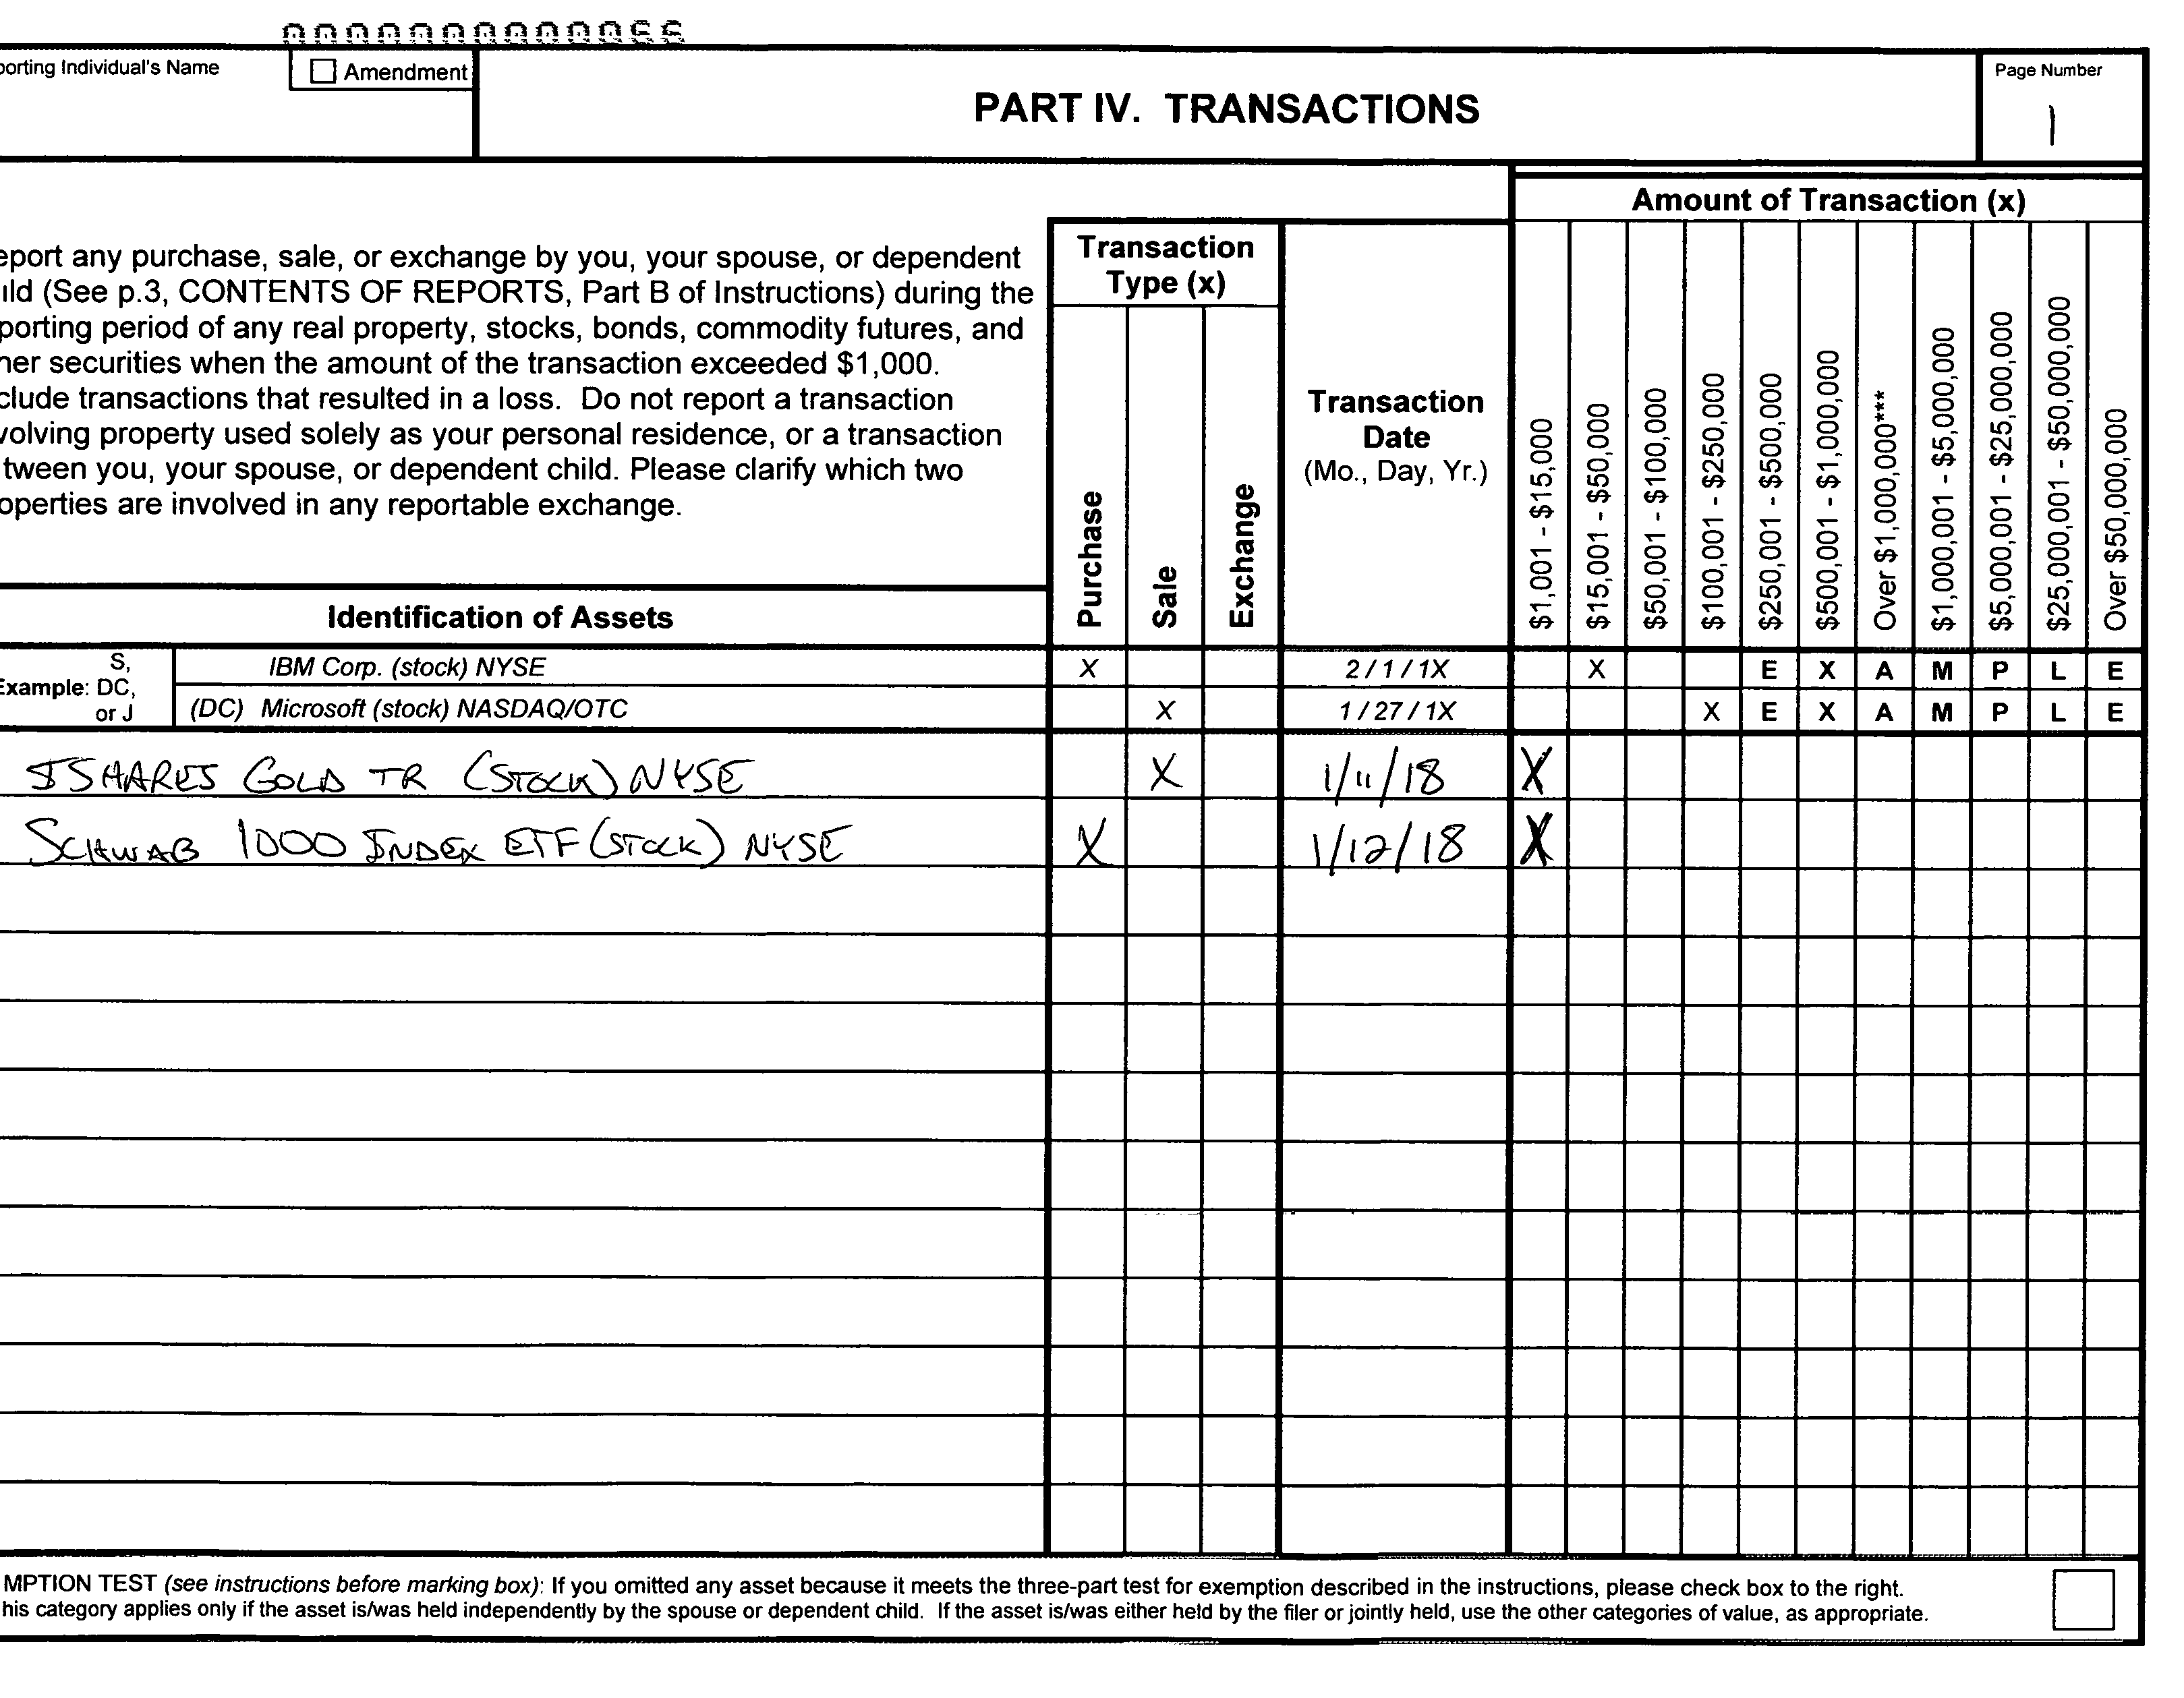 porting Individual's Name
Amendment
PART IV. TRANSACTIONS
Page Number
1
Amount of Transaction (x)
Transaction
Type (x)
eport any purchase, sale, or exchange by you, your spouse, or dependent
ild (See p.3, CONTENTS OF REPORTS, Part B of Instructions) during the
porting period of any real property, stocks, bonds, commodity futures, and
ner securities when the amount of the transaction exceeded $1,000.
clude transactions that resulted in a loss. Do not report a transaction
volving property used solely as your personal residence, or a transaction
tween you, your spouse, or dependent child. Please clarify which two
operties are involved in any reportable exchange.
Purchase
Sale
Exchange
Transaction
Date
(Mo., Day, Yr.)
$1,001 - $15,000
$15,001 - $50,000
$50,001 - $100,000
$100,001 - $250,000
$250,001 - $500,000
$500,001 - $1,000,000
Over $1,000,000***
$1,000,001 - $5,000,000
$5,000,001 - $25,000,000
$25,000,001 - $50,000,000
Over $50,000,000
Identification of Assets
Example: S, DC, or J
IBM Corp. (stock) NYSE X 2 / 1 / 1X X E X A M P L E
(DC) Microsoft (stock) NASDAQ/OTC X 1 / 27 / 1X X E X A M P L E
ISHARES GOLD TR (STOCK) NYSE X 1/11/18 X
SCHWAB 1000 INDEX ETF (STOCK) NYSE X 1/12/18 X
MPTION TEST (see instructions before marking box): If you omitted any asset because it meets the three-part test for exemption described in the instructions, please check box to the right.
his category applies only if the asset is/was held independently by the spouse or dependent child. If the asset is/was either held by the filer or jointly held, use the other categories of value, as appropriate.